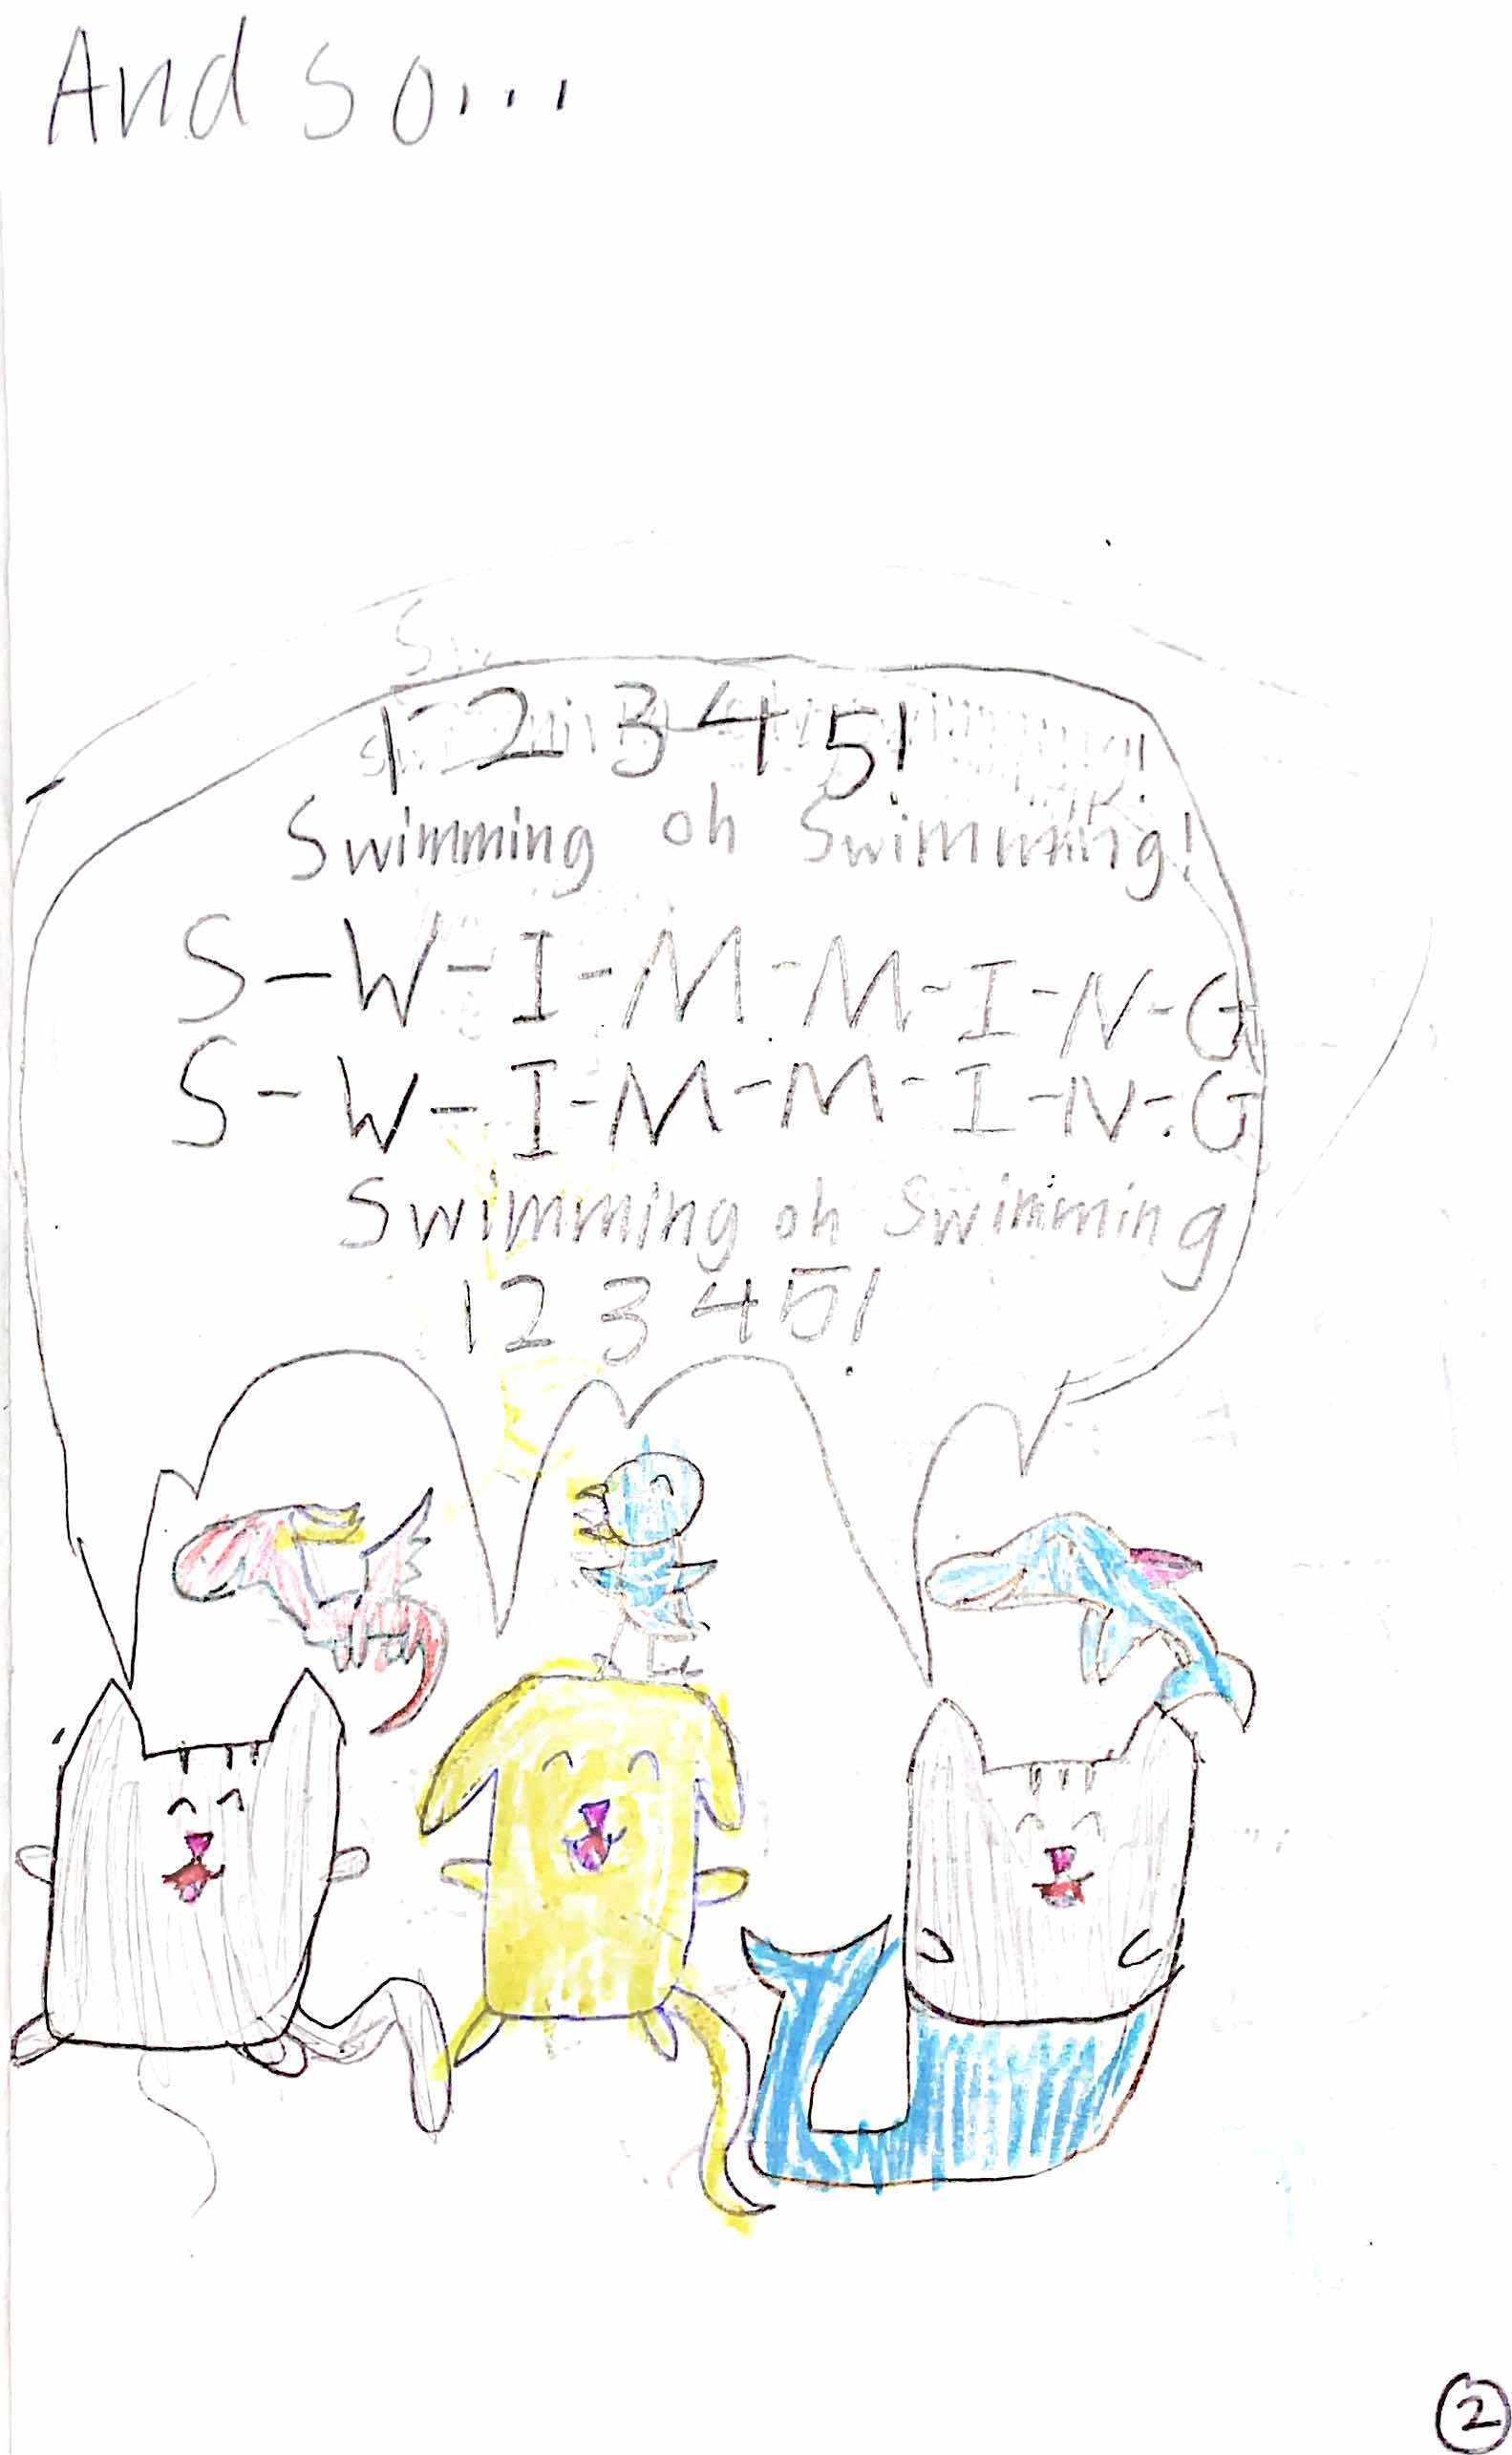 And so...
1 2 3 4 5!
Swimming oh Swimming!
S-W-I-M-M-I-N-G
S-W-I-M-M-I-N-G
Swimming oh Swimming
1 2 3 4 5!
2